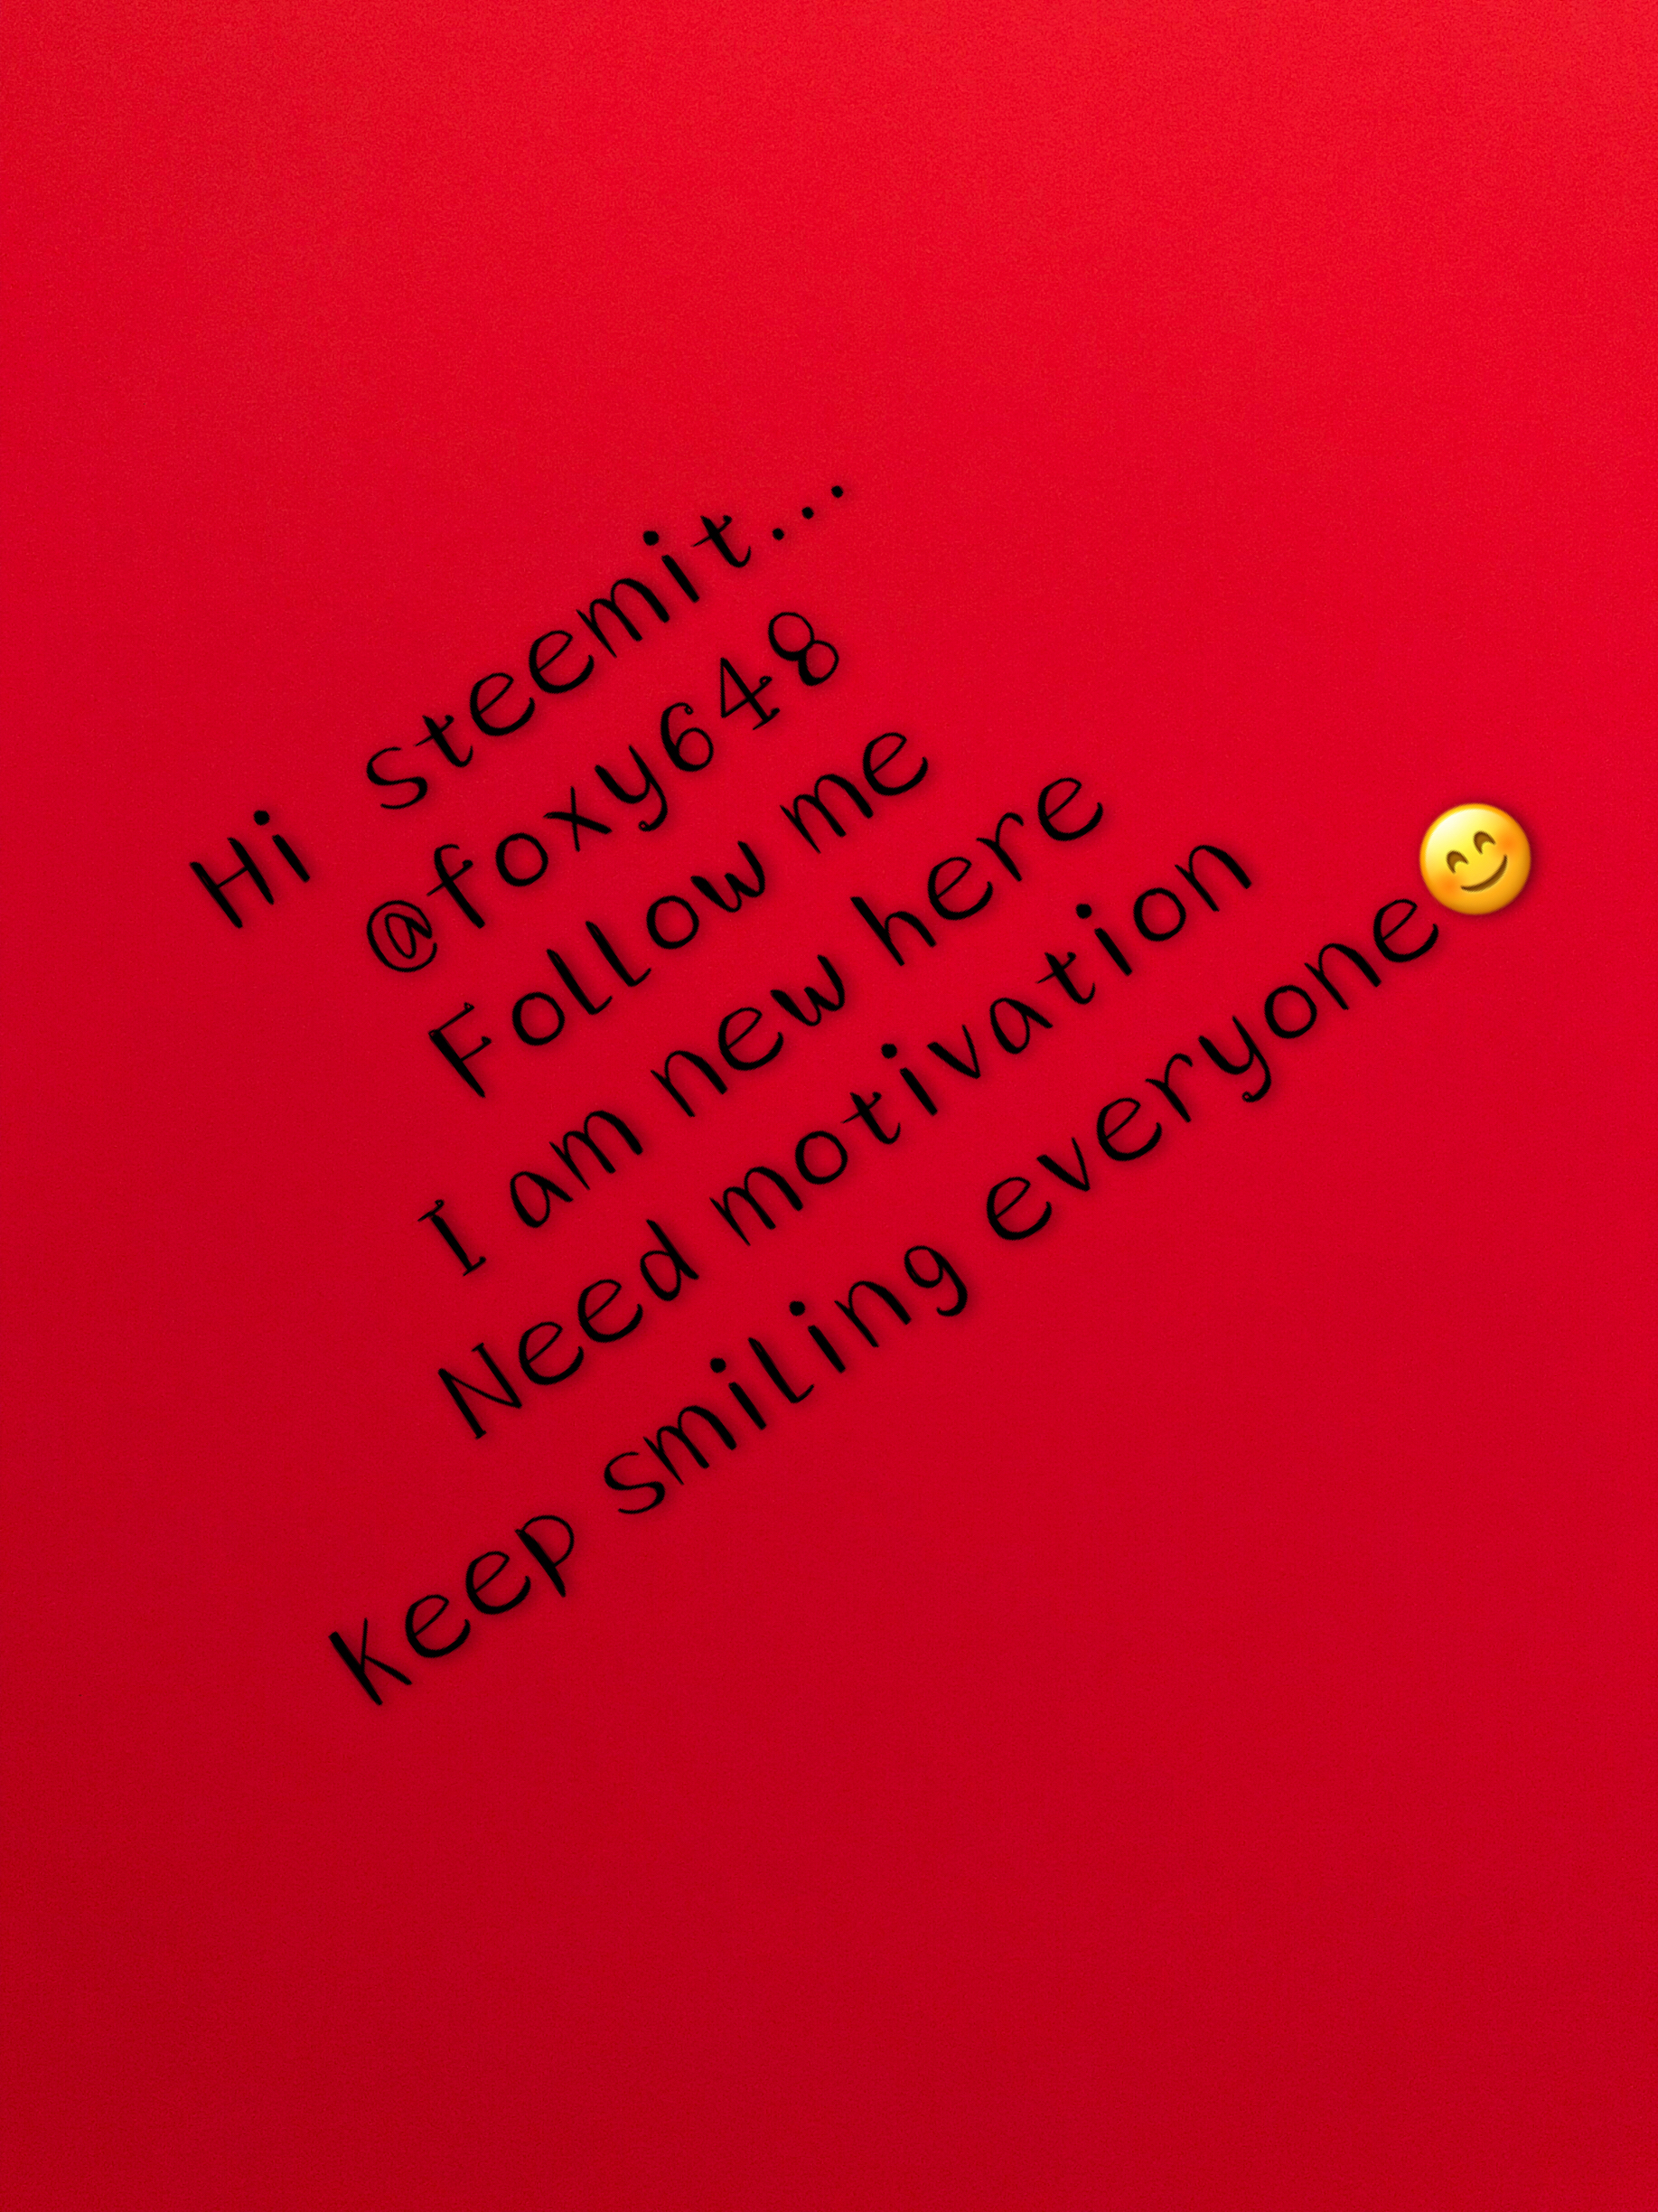 Hi steemit...
@foxy648
Follow me
I am new here
Need motivation
Keep smiling everyone😊